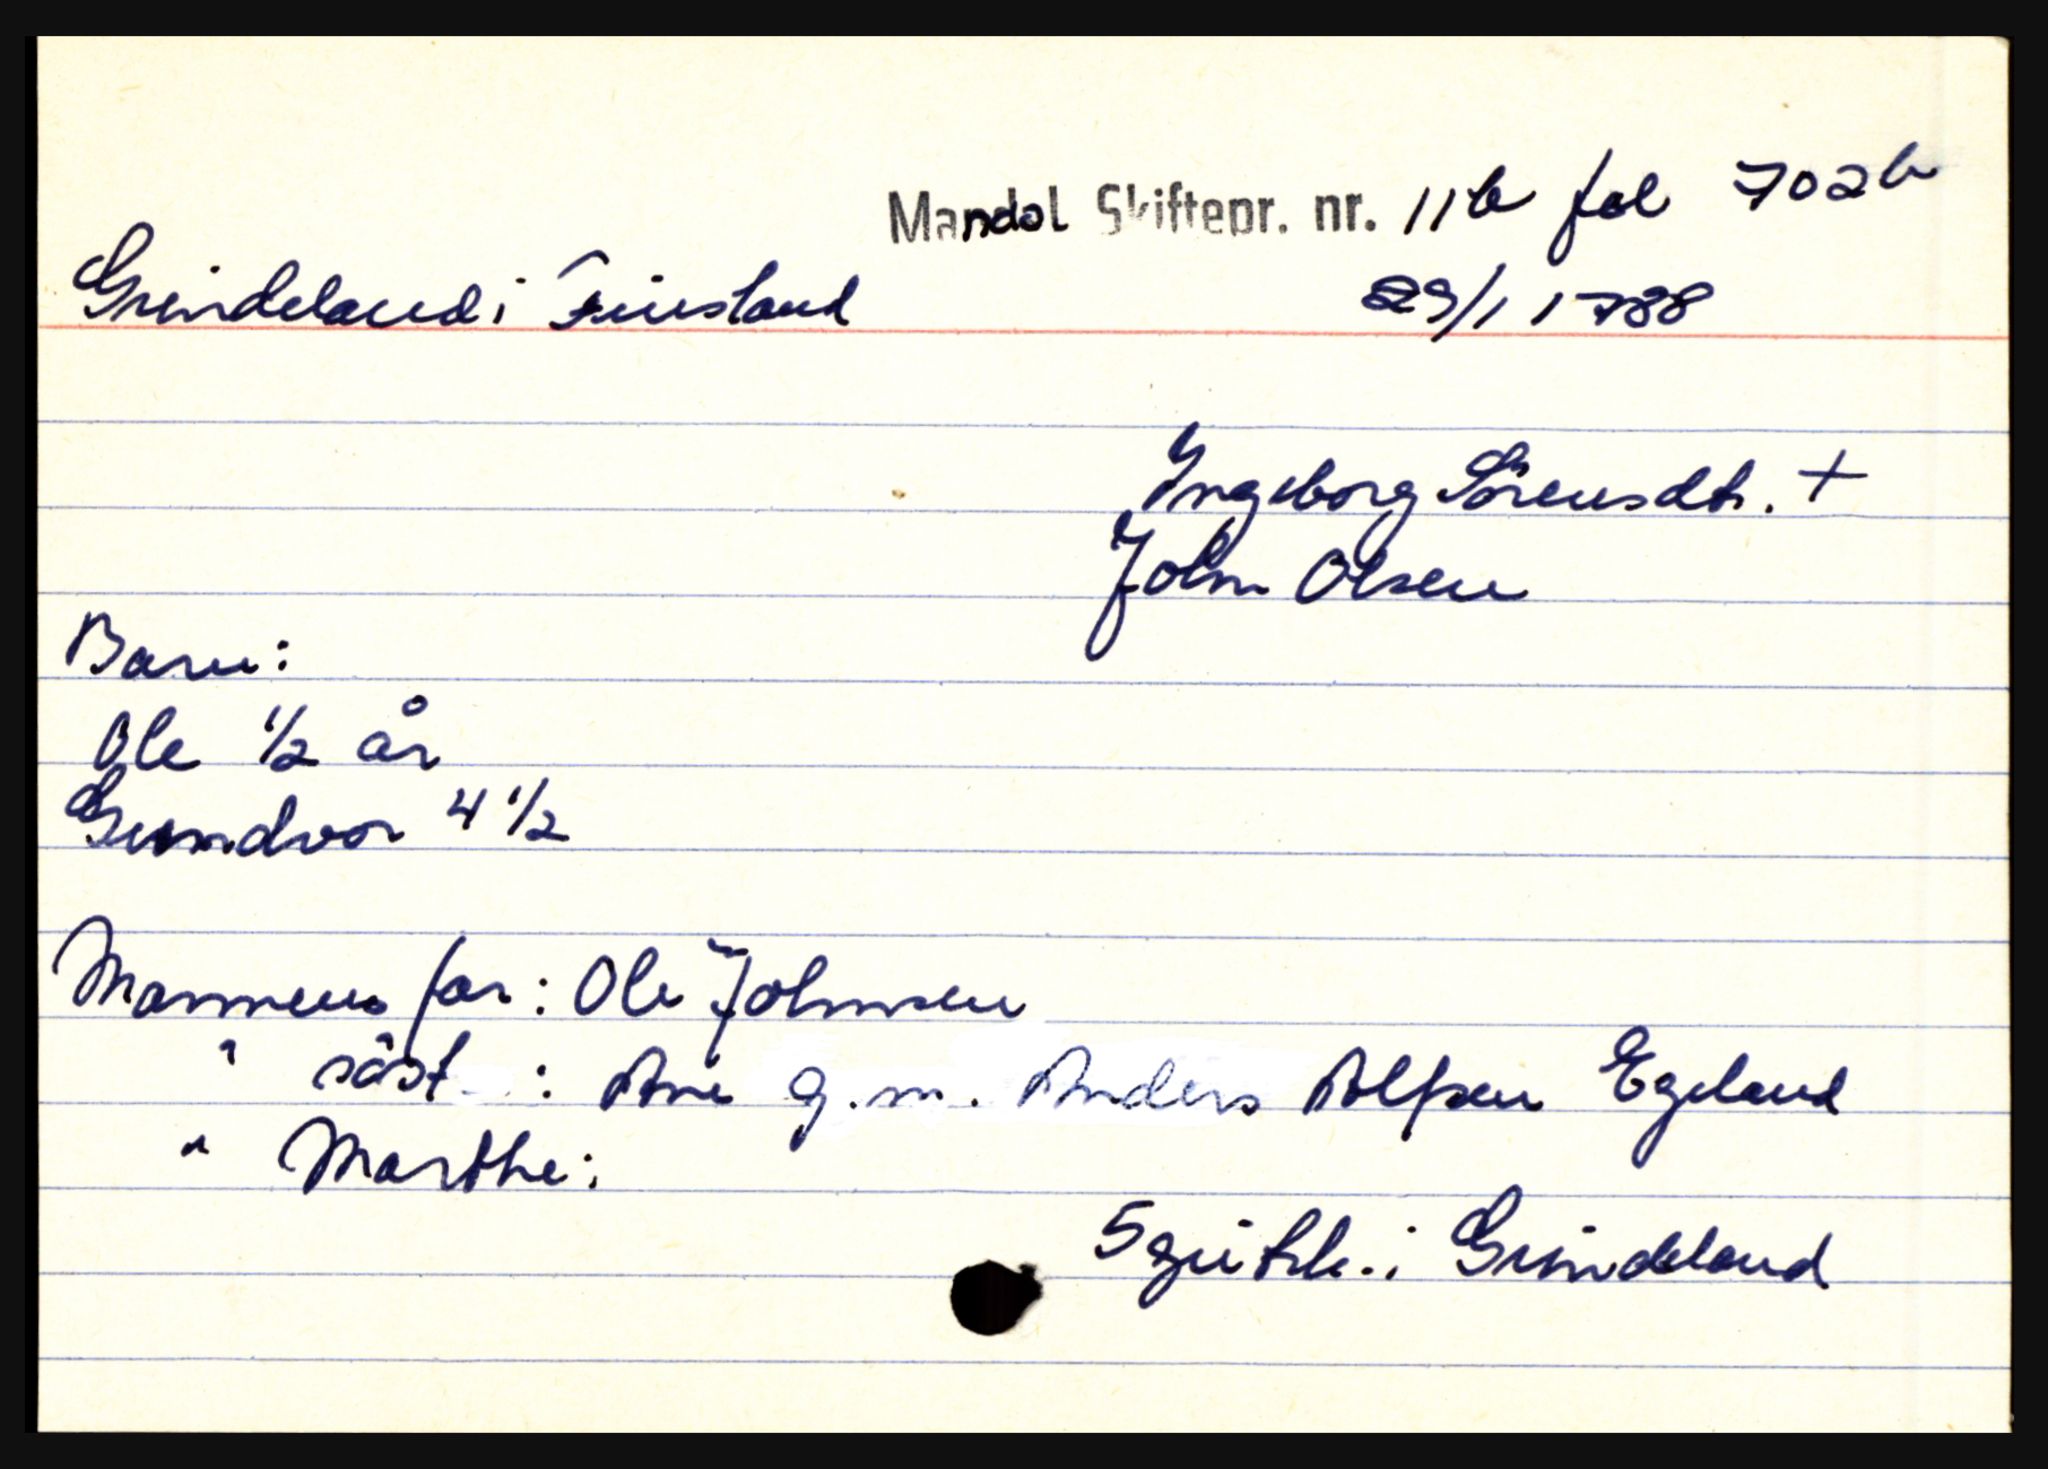 Mandal Skiftepr. nr. 11b fol 702b
Grindeland i Finsland 29/1 1788
Ingeborg Sörensdtr. +
John Olsen
Barn:
Ole 1/2 år
Gundvor 4 1/2
Mannens far: Ole Johnsen
" söst : Ane g.m. Anders Alfsen Egeland
" Marthe:
5 gitk. i Grindeland